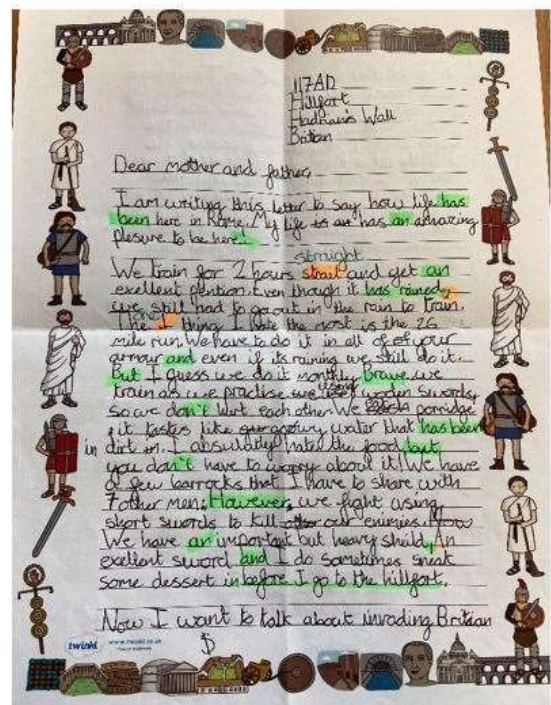 117AD
Hillfort
Hadrian's Wall
Britan
Dear mother and father,
I am writing this letter to say how life has
been here in Rome. My life is an has an amazing
plesure to be here!
straight
We train for 2 hours strait and get an
exellent pention. Even though it has rained,
we still had to go out in the rain to train.
The thing I hate the most is the 26
mile run. We have to do it in all of of your
armour and even if its raining we still do it.
But I guess we do it monthly brave we
train as we practise we use using wooden swords,
so we don't hurt each other. We porridge
it tastes like water that has been
in dirt in. I absulutly hate the food but
you don't have to worry about it! We have
a few barrocks that I have to share with
7 other men. However, we fight using
short swords to kill our enimies. Now
We have an important but heavy sheild, An
exellent sword and I do sometimes sneak
some dessert in before I go to the hillfort.
Now I want to talk about invading Britian
twinkl www.twinkl.co.uk